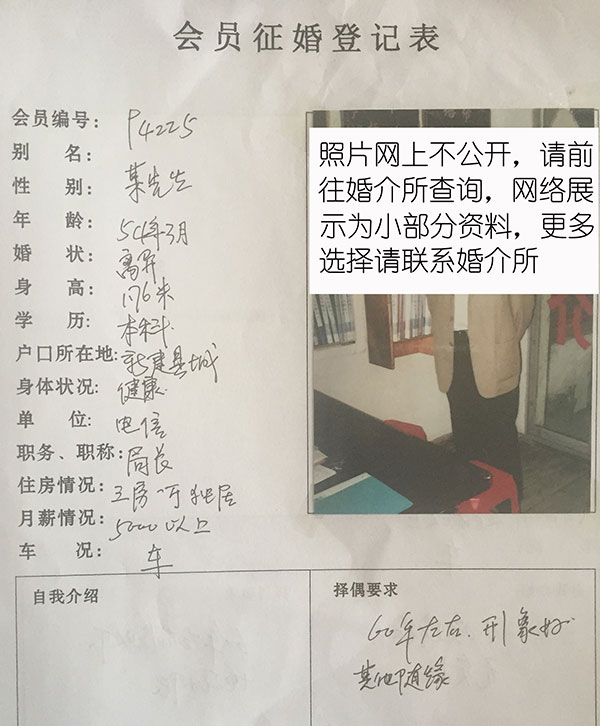 会员征婚登记表
会员编号: P4225
别 名:
性 别: 某先生
年 龄: 54年3月
婚 状: 离异
身 高: 176米
学 历: 本科
户口所在地: 新建县城
身体状况: 健康
单 位: 电信
职务、职称: 局长
住房情况: 三房一厅 独居
月薪情况: 5000以上
车 况: 车
照片网上不公开，请前
往婚介所查询，网络展
示为小部分资料，更多
选择请联系婚介所
自我介绍
择偶要求
60年左右. 形象好
其他随缘